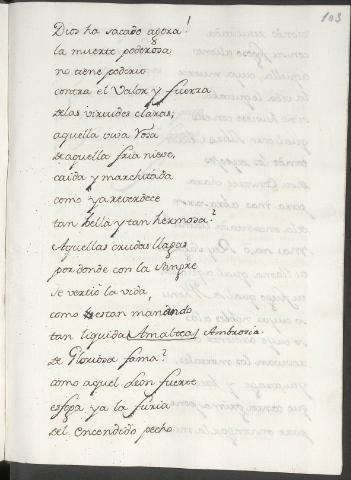 103
Dios ha sacado agora!
la muerte poderosa,
no tiene poderio
contra el Valor y fuerza
de las virtudes claras;
aquella viva Rosa
de aquella fria nieve,
caida y marchitada
como ya reverdece
tan bella y tan hermosa?
Aquellas crudas llagas
por donde con la Sangre
se vertió la vida,
como estan manando
tan liquida Amaltea, Ambrosia
de Gloriosa fama?
como aquel Leon fuerte
esfoga ya la furia
del encendido pecho